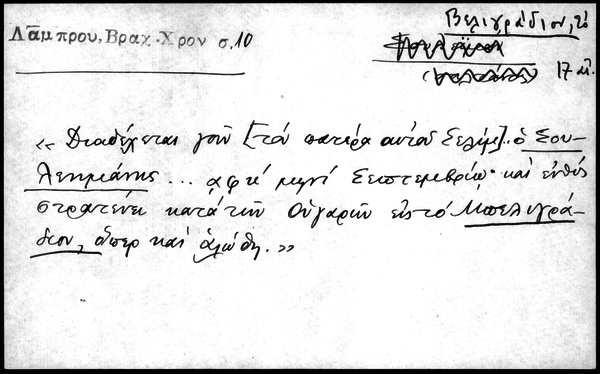 Λάμπρου, Βραχ. Χρον σ.10
Βελιγράδιον, τὸ
17 αἰ.
« Διαδέχεται γοῦν [τὸν πατέρα αὐτοῦ Σελὴμ]..ὁ Σου-
λεημάνης ... αφκʹ μηνὶ Σεπτεμβρίῳ· καὶ εὐθὺς
στρατεύει κατὰ τῶν Οὑγαρῶν εἰς τὸ Μπελιγρά-
διον, ὅπερ καὶ ἁλώθη. »